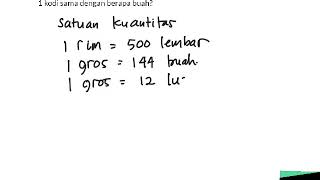 1 kodi sama dengan berapa buah?
Satuan kuantitas
1 rim = 500 lembar
1 gros = 144 buah.
1 gros = 12 lu